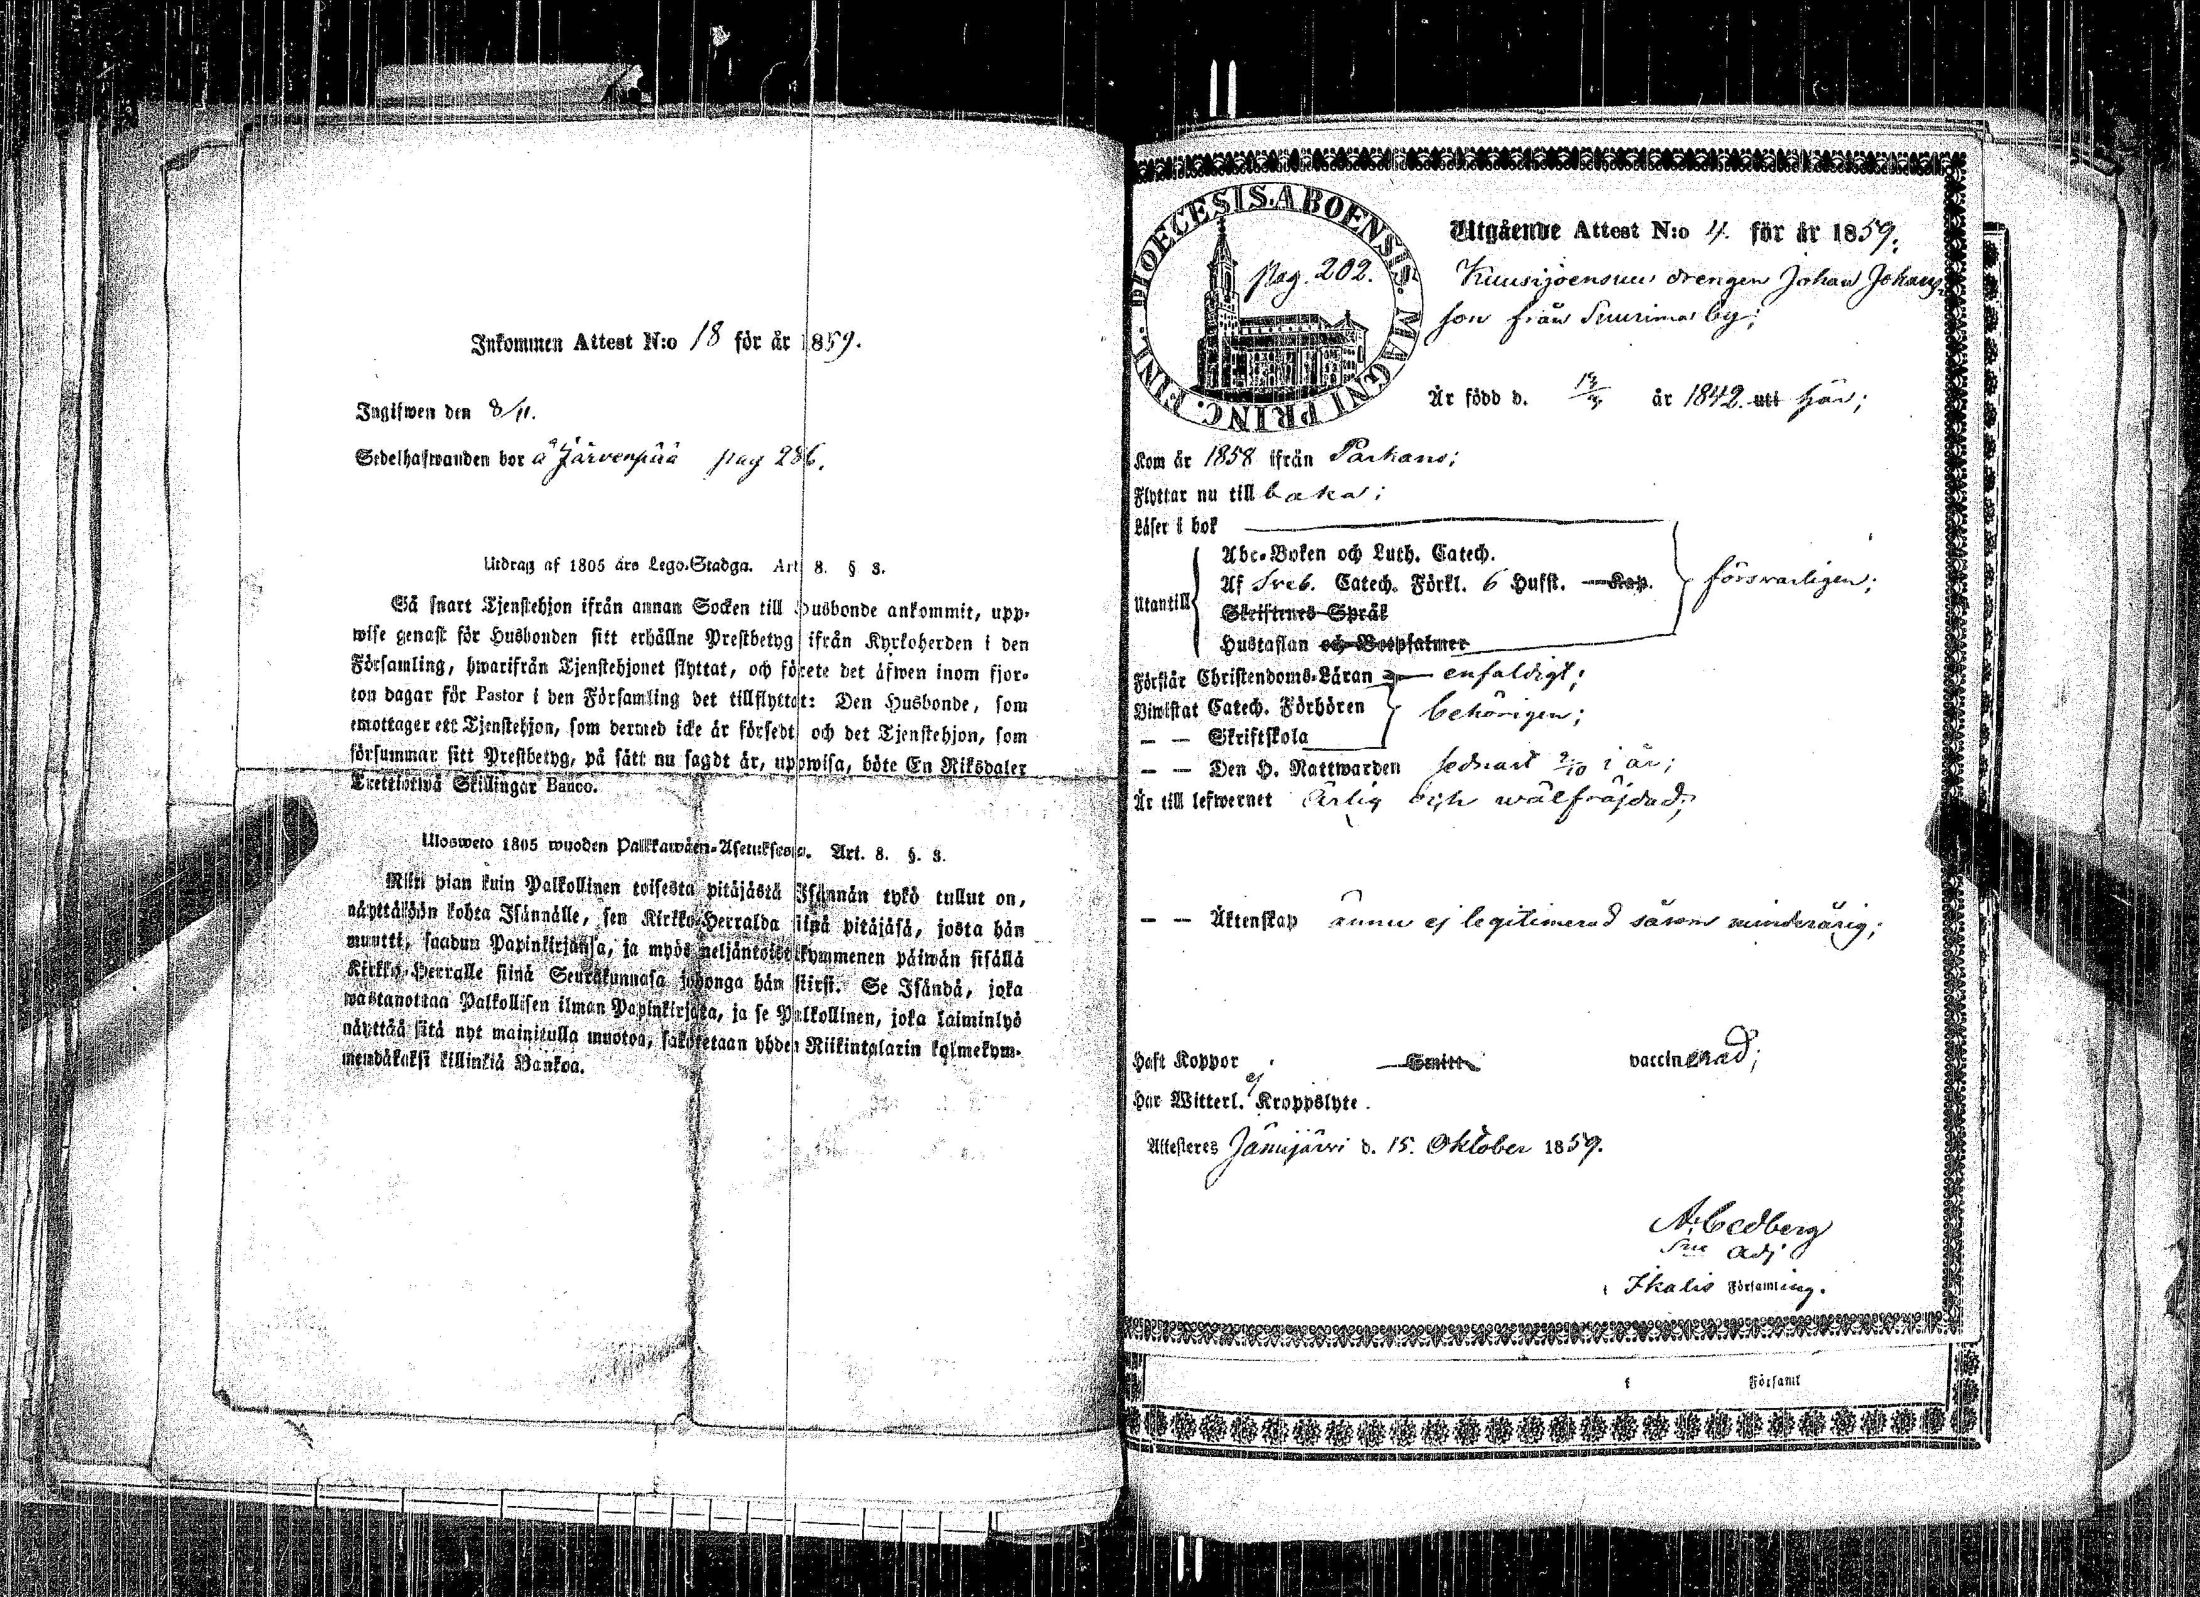 Inkommen Attest N:o 18 för år 1859.
Ingifwen den 8/11.
Sedelhafwanden bor å Järvenpää pag 286.
Utdrag af 1805 års Lego-Stadga. Art. 8. § 3.
Så snart Tjenstehjon ifrån annan Socken till Husbonde ankommit, upp-
wise genast för Husbonden sitt erhållne Prestbetyg ifrån Kyrkoherden i den
Församling, hwarifrån Tjenstehjonet flyttat, och förete det äfwen inom fjor-
ton dagar för Pastor i den Församling det tillflyttat: Den Husbonde, som
emottager ett Tjenstehjon, som dermed icke är försedt, och det Tjenstehjon, som
försummar sitt Prestbetyg, på sätt nu sagdt är, uppwisa, böte En Riksdaler
Trettiotwå Skillingar Banco.
Ulosweto 1805 wuoden Palkkawäen-Asetuksesta. Art. 8. §. 3.
Niin pian kuin Palkollinen toisesta pitäjästä Isännän tykö tullut on,
näyttäköön kohta Isännälle, sen Kirkko-Herralda siinä pitäjäsä, josta hän
muutti, saadun Papinkirjansa, ja myös neljäntoistakymmenen päiwän sisällä
Kirkko-Herralle siinä Seurakunnasa johonga hän siirsi. Se Isändä, joka
wastanottaa Palkollisen ilman Papinkirjata, ja se Palkollinen, joka laiminlyö
näyttää sitä nyt mainitulla muotoa, sakotetaan yhden Riikintalarin kolmekym-
mendäkaksi killinkiä Bankoa.
DIOECESIS.ABOENSIS. MAGNI PRINC. FINL.
pag. 202.
Utgående Attest N:o 4. för år 1859.
Kuusijoensuu drengen Johan Johans-
son från Suurimaa by;
Är född d. år 1842. uti här;
Kom år 1858 ifrån Parkano;
Flyttar nu till baka;
Läser i bok
Utantill
Abc-Boken och Luth. Catech.
Af Sveb. Catech. Förkl. 6 Hufst. Kap.
Skriftenes Språk
Hustaflan och Botpsalmer
försvarligen;
Förstår Christendoms-Läran enfaldigt;
Biwistat Catech. Förhören
behörigen;
— — Skriftskola
— — Den H. Nattwarden sednast 2/10 i år;
Är till lefwernet Ärlig och wälfräjdad;
— — Äktenskap ännu ej legitimerad såsom minderårig;
Haft Koppor Smitt vaccinerad;
Har Witterl. ej Kroppslyte.
Attesteres Jämijärvi d. 15. Oktober 1859.
A. Cedberg
Adj
i Ikalis Församling.
i Församl